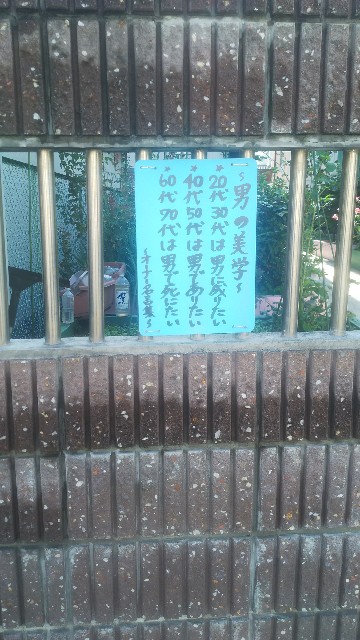 ～男の美学～
★20代30代は男に成りたい
★40代50代は男でありたい
★60代70代は男で死にたい
～オーナー名言集～